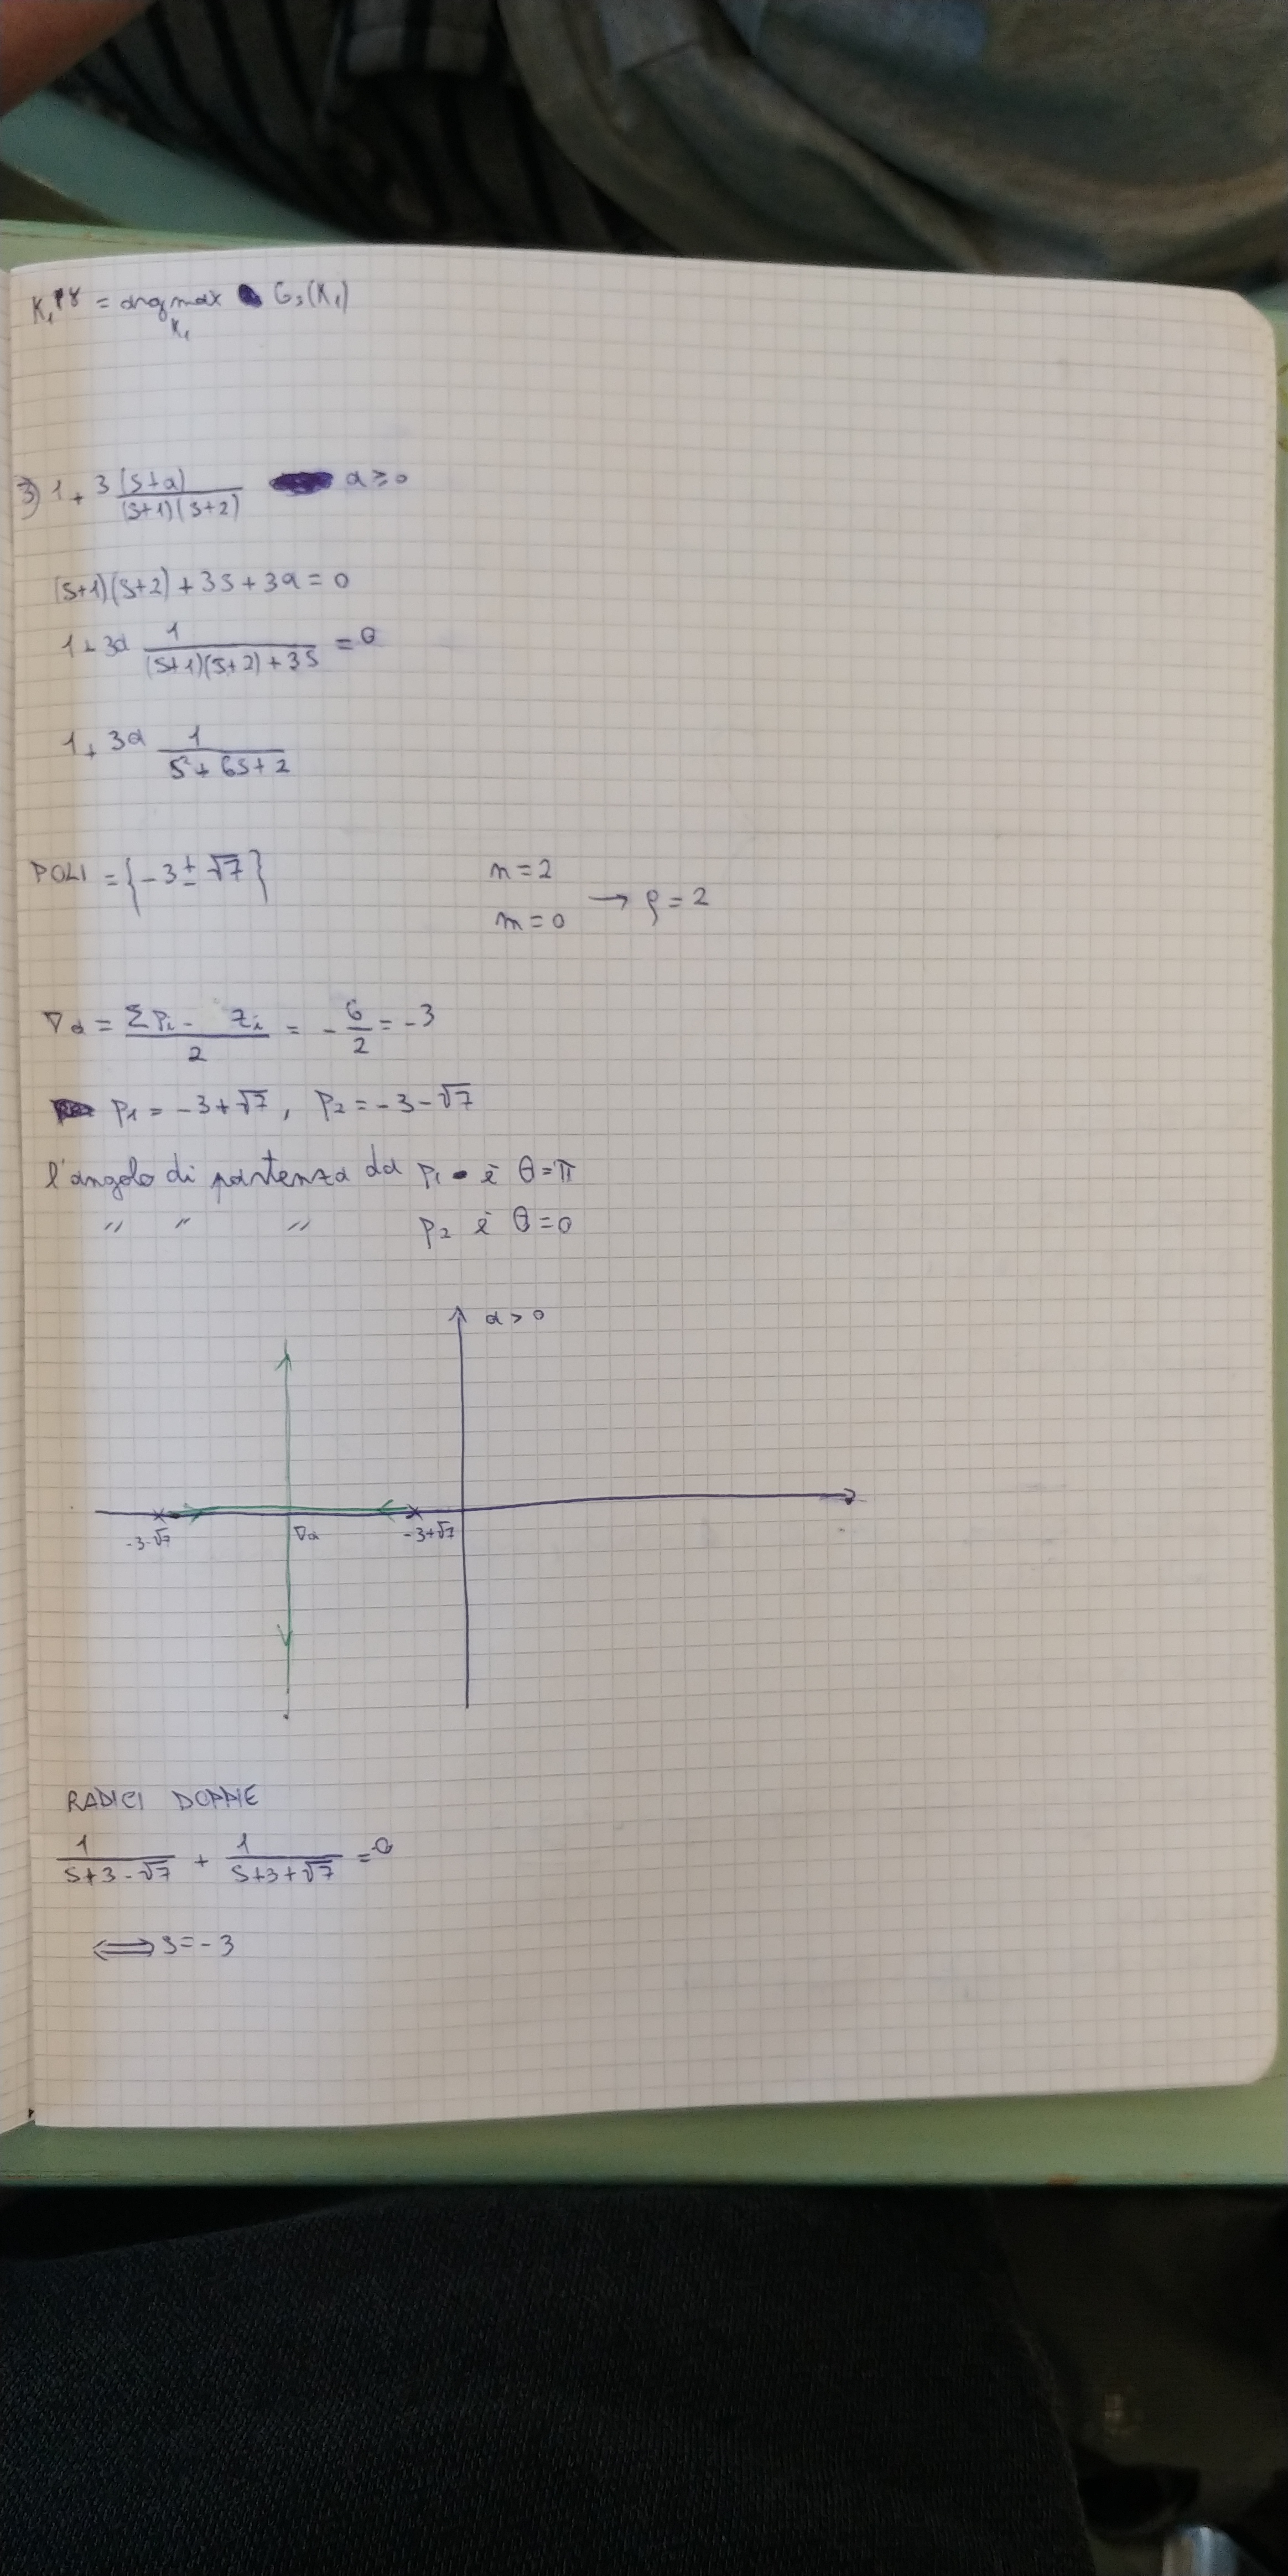 K₁ = argmax G₃(K₁)
K₁
3) 1 + 3 (s+a)/((s+1)(s+2)) a ≥ 0
(s+1)(s+2) + 3s + 3a = 0
1 + 3a 1/((s+1)(s+2) + 3s) = 0
1 + 3a 1/(s² + 6s + 2)
POLI = {-3 ± √7} n = 2
m = 0 → ρ = 2
∇a = (Σ pᵢ - zᵢ)/2 = - 6/2 = -3
p₁ = -3+√7, p₂ = -3-√7
l'angolo di partenza da p₁ è θ = π
" " " p₂ è θ = 0
a > 0
-3-√7 ∇a -3+√7
RADICI DOPPIE
1/(s+3-√7) + 1/(s+3+√7) = 0
⟺ s = -3